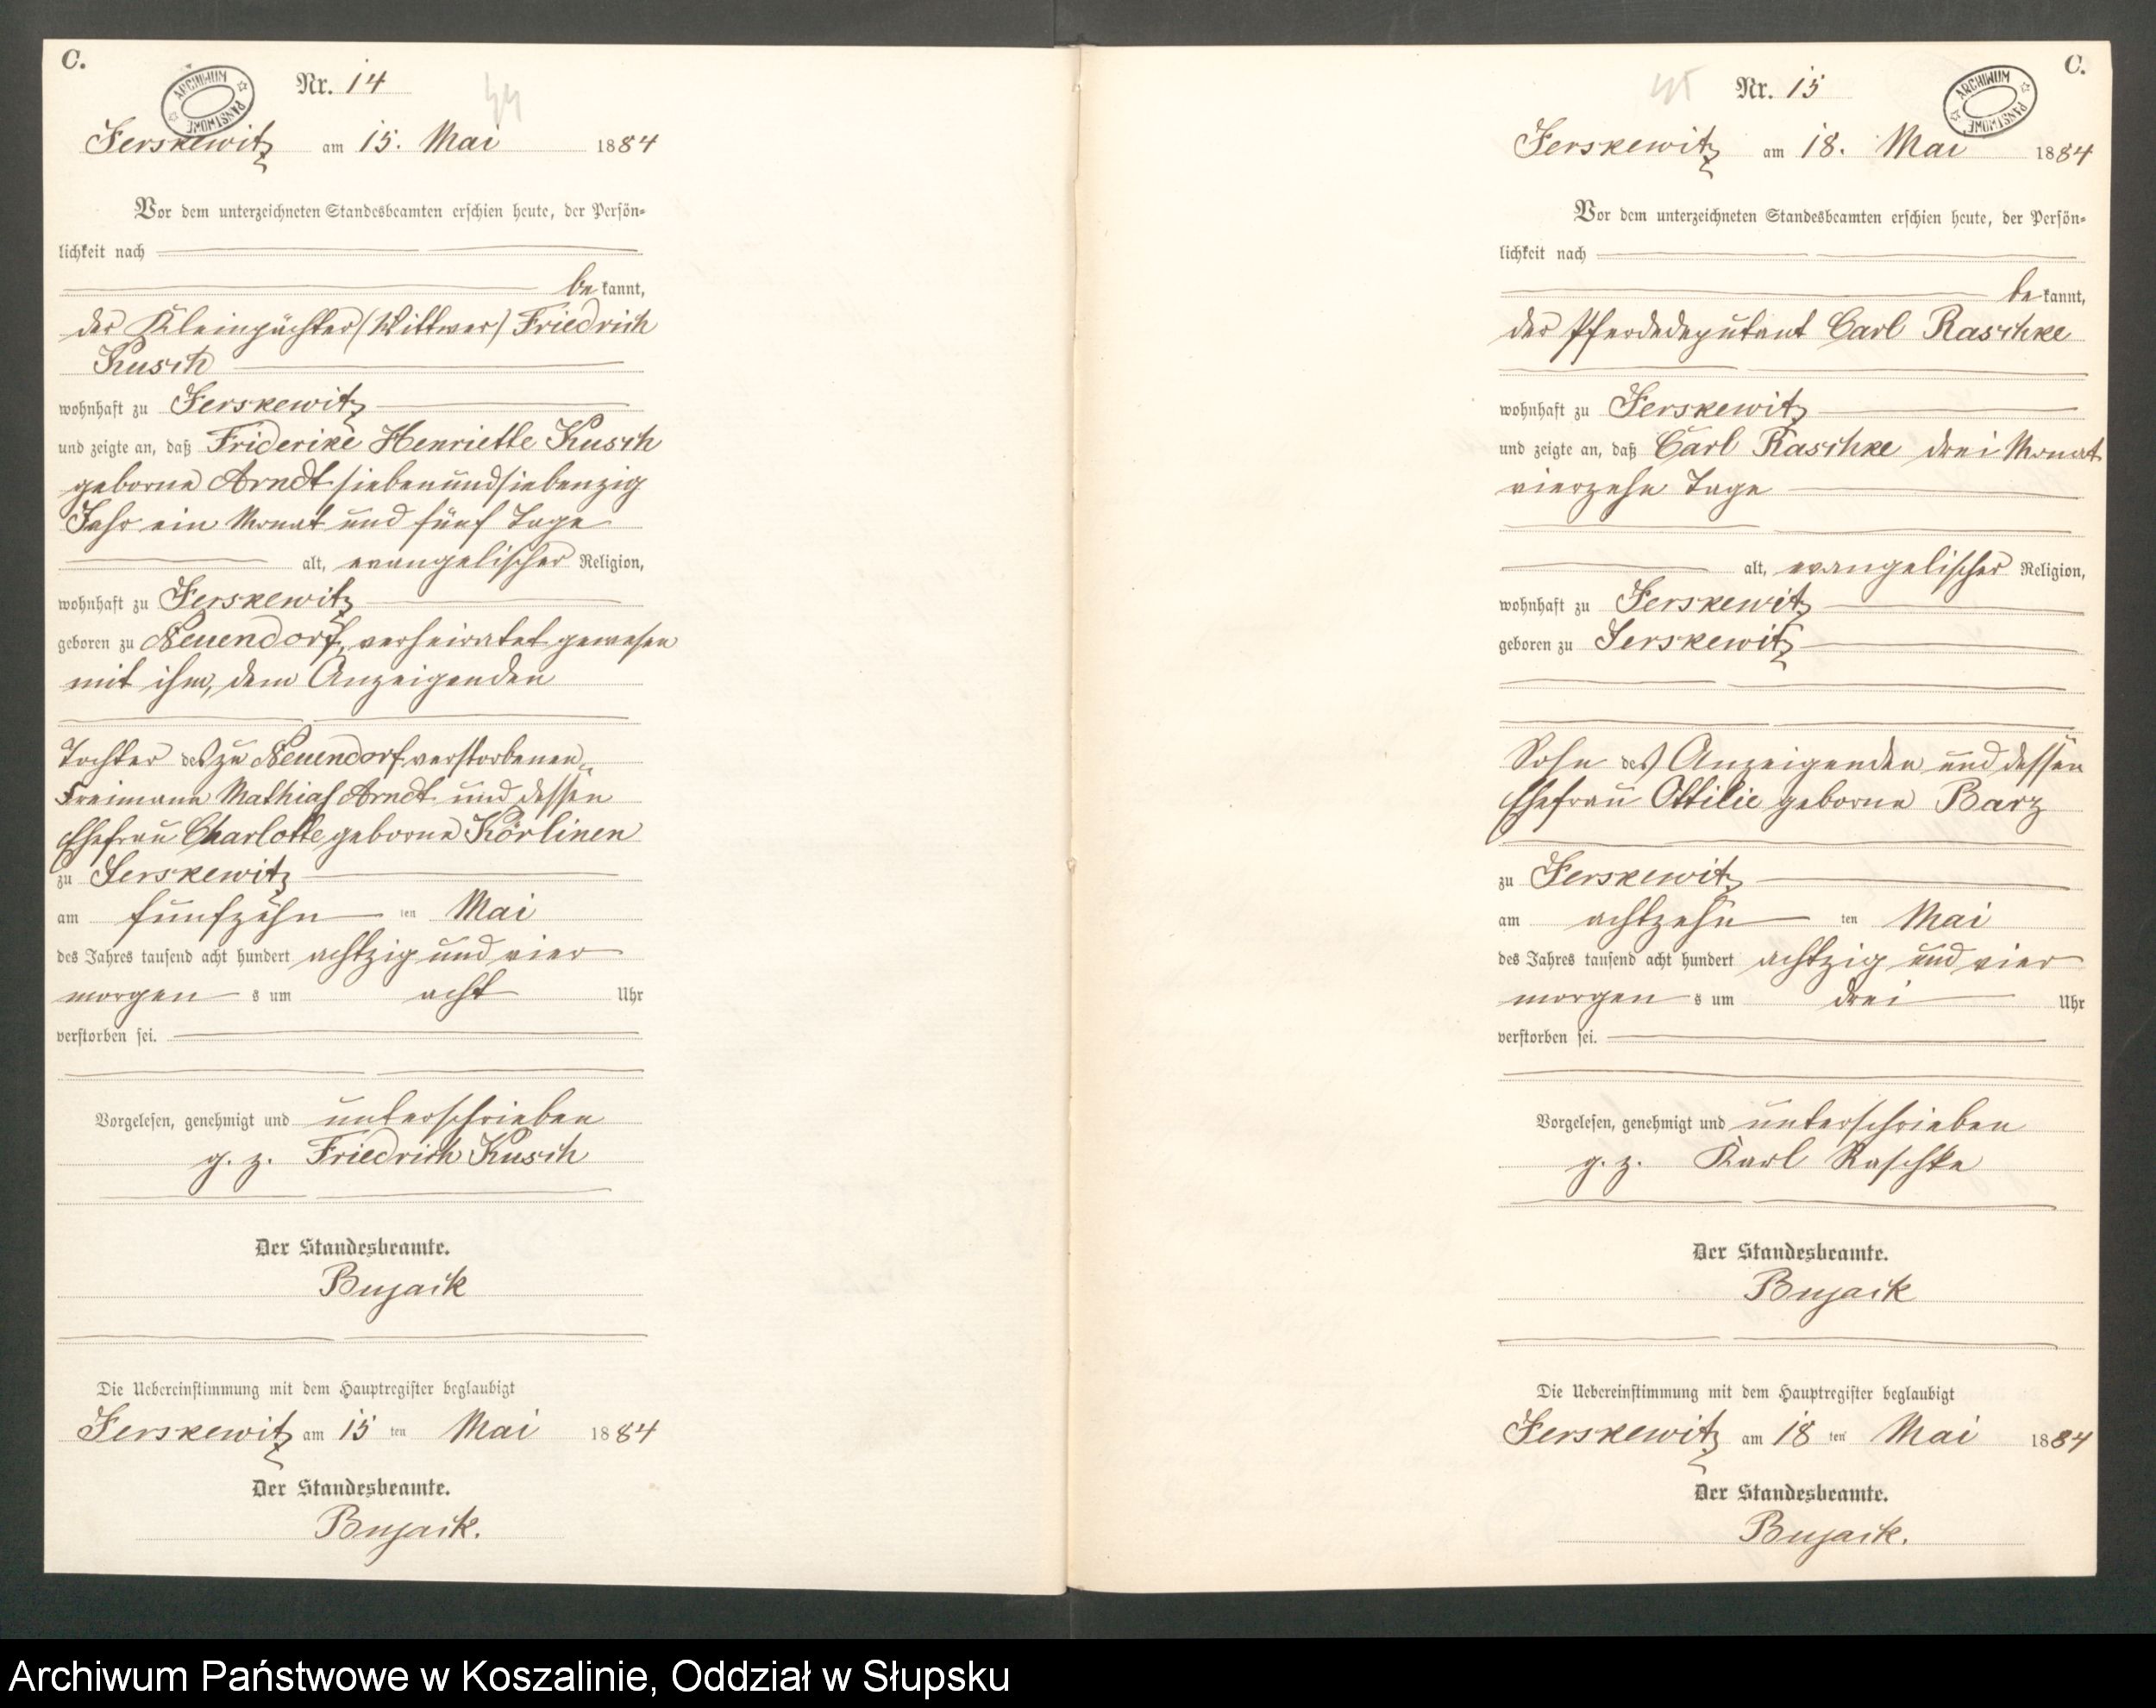 C.
ARCHIWUM PAŃSTWOWE
Nr. 14
44
Jerskewitz am 15. Mai 1884
Vor dem unterzeichneten Standesbeamten erschien heute, der Persön-
lichkeit nach
bekannt,
der Kleinpächter (Wittwer) Friedrich
Kusch
wohnhaft zu Jerskewitz
und zeigte an, daß Friderike Henriette Kusch
geborne Arndt siebenundsiebenzig
Jahr ein Monat und fünf Tage
alt, evangelischer Religion,
wohnhaft zu Jerskewitz
geboren zu Neuendorf, verheiratet gewesen
mit ihm, dem Anzeigenden
Tochter des zu Neuendorf verstorbenen
Freimann Mathias Arndt und dessen
Ehefrau Charlotte geborne Körlinen
zu Jerskewitz
am fünfzehn ten Mai
des Jahres tausend acht hundert achtzig und vier
morgen s um acht Uhr
verstorben sei.
Vorgelesen, genehmigt und unterschrieben
g. z. Friedrich Kusch
Der Standesbeamte.
Bujack
Die Uebereinstimmung mit dem Hauptregister beglaubigt
Jerskewitz am 15 ten Mai 1884
Der Standesbeamte.
Bujack.
C.
ARCHIWUM PAŃSTWOWE
45
Nr. 15
Jerskewitz am 18. Mai 1884
Vor dem unterzeichneten Standesbeamten erschien heute, der Persön-
lichkeit nach
bekannt,
der Pferdedeputant Carl Raschke
wohnhaft zu Jerskewitz
und zeigte an, daß Carl Raschke drei Monat
vierzehn Tage
alt, evangelischer Religion,
wohnhaft zu Jerskewitz
geboren zu Jerskewitz
Sohn des Anzeigenden und dessen
Ehefrau Ottilie geborne Barz
zu Jerskewitz
am achtzehn ten Mai
des Jahres tausend acht hundert achtzig und vier
morgen s um drei Uhr
verstorben sei.
Vorgelesen, genehmigt und unterschrieben
g. z. Karl Raschke
Der Standesbeamte.
Bujack
Die Uebereinstimmung mit dem Hauptregister beglaubigt
Jerskewitz am 18 ten Mai 1884
Der Standesbeamte.
Bujack.
Archiwum Państwowe w Koszalinie, Oddział w Słupsku